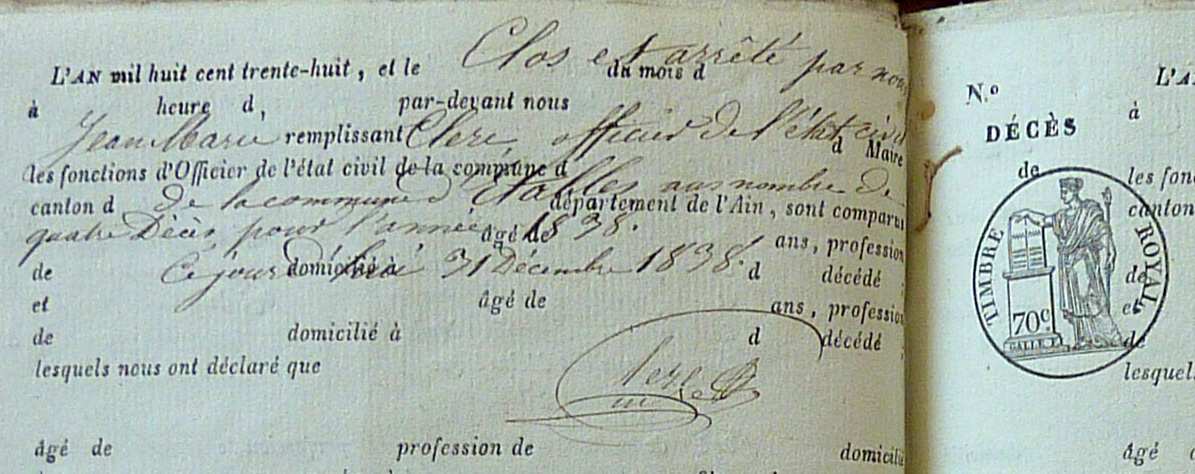 Clos et arrêté par nous
L'AN mil huit cent trente-huit, et le du mois d
à heure d, par-devant nous
Jean Marie Clerc officier de l'état civil
remplissant d Maire
les fonctions d'Officier de l'état civil de la commune d
de la commune d'Etalles au nombre de
canton d département de l'Ain, sont comparus
quatre Décès pour l'année 1838.
âgé de ans, profession
Ce jour 31 Décembre 1838.
de domicilié à d décédé ;
et âgé de ans, profession
de domicilié à d décédé ;
lesquels nous ont déclaré que
Clerc
âgé de profession de domicilié
N.º
DÉCÈS
de
TIMBRE ROYAL
70c
L'A
à
les fonc
canton
de
et
de
lesquels
âgé d